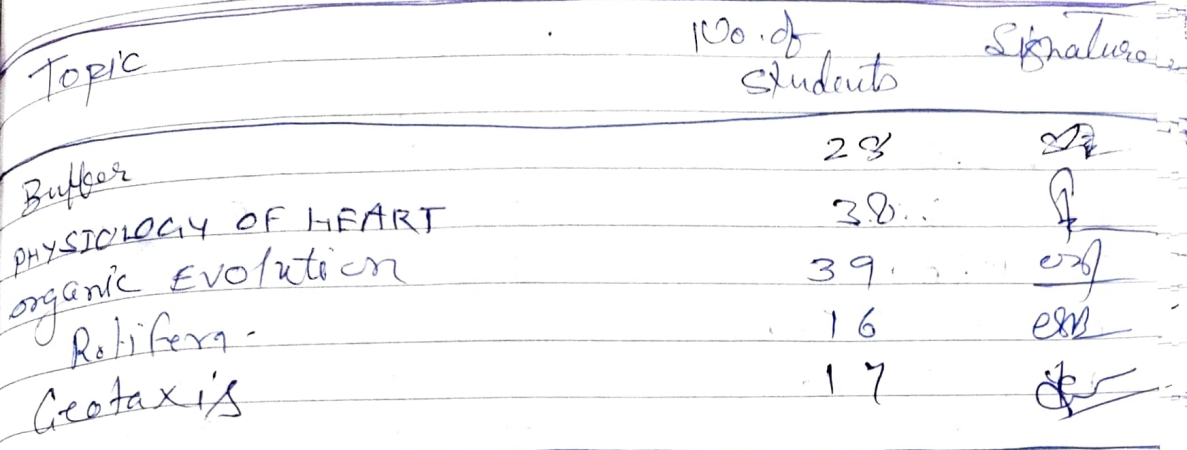 Topic No. of Students Signature
Buffer 28
PHYSIOLOGY OF HEART 38
organic Evolution 39
Rotifera - 16
Geotaxis 17